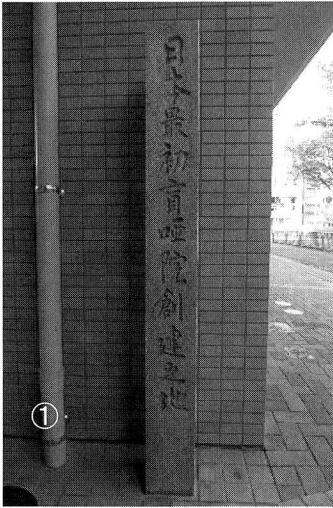 日本最初盲唖院創建之地
①